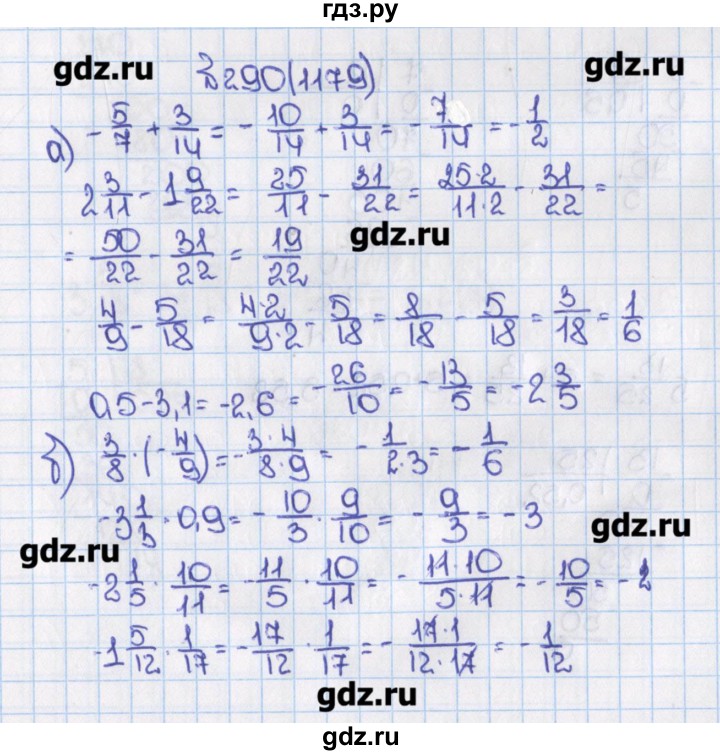 гдз.ру
gdz.ru
№290(1179)
gdz.ru
а) -5/7 + 3/14 = -10/14 + 3/14 = -7/14 = -1/2
2 3/11 - 1 9/22 = 25/11 - 31/22 = 25·2/11·2 - 31/22 =
gdz.ru
= 50/22 - 31/22 = 19/22
4/9 - 5/18 = 4·2/9·2 - 5/18 = 8/18 - 5/18 = 3/18 = 1/6
0,5-3,1 = -2,6 = -26/10 = -13/5 = -2 3/5
б) 3/8 · (-4/9) = -3·4/8·9 = -1/2·3 = -1/6
-3 1/3 · 0,9 = -10/3 · 9/10 = -9/3 = -3
gdz.ru
gdz.ru
-2 1/5 · 10/11 = -11/5 · 10/11 = -11·10/5·11 = -10/5 = -2
-1 5/12 · 1/17 = -17/12 · 1/17 = -17·1/12·17 = -1/12
gdz.ru
gdz.ru